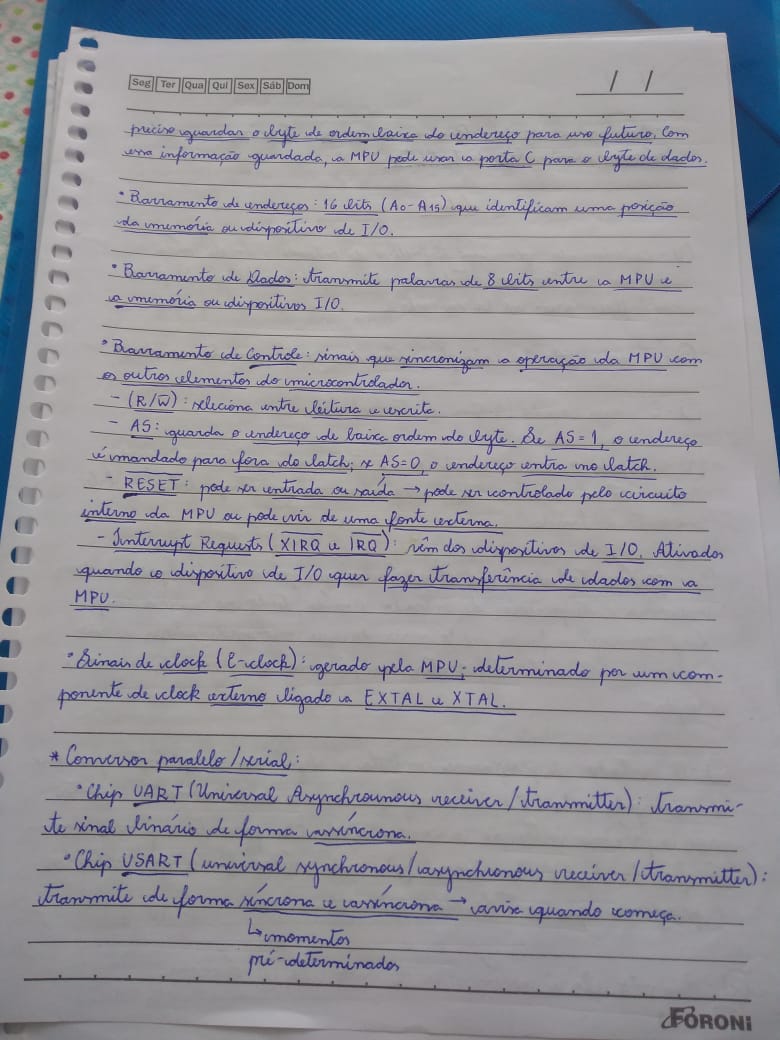 Seg Ter Qua Qui Sex Sáb Dom
/ /
preciso guardar o byte de ordem baixa do endereço para uso futuro. Com
essa informação guardada, a MPU pode usar a porta C para o byte de dados.
• Barramento de endereços: 16 bits (A0-A15) que identificam uma posição
da memória ou dispositivo de I/O.
• Barramento de Dados: transmite palavras de 8 bits entre a MPU e
a memória ou dispositivos I/O.
• Barramento de Controle: sinais que sincronizam a operação da MPU com
os outros elementos do microcontrolador.
- (R/W̅): seleciona entre leitura e escrita.
- AS: guarda o endereço de baixa ordem do byte. Se AS=1, o endereço
é mandado para fora do latch; se AS=0, o endereço entra no latch.
- R̅E̅S̅E̅T̅: pode ser entrada ou saída → pode ser controlado pelo circuito
interno da MPU ou pode vir de uma fonte externa.
- Interrupt Requests (X̅I̅R̅Q̅ e I̅R̅Q̅): vêm dos dispositivos de I/O. Ativados
quando o dispositivo de I/O quer fazer transferência de dados com a
MPU.
• Sinais de clock (E-clock): gerado pela MPU; determinado por um com-
ponente de clock externo ligado a EXTAL e XTAL.
* Conversor paralelo/serial:
• Chip UART (Universal Asynchrounous receiver/transmitter): transmi-
te sinal binário de forma assíncrona.
• Chip USART (universal synchronous/asynchronous receiver/transmitter):
transmite de forma síncrona e assíncrona → avisa quando começa.
↳ momentos
pré-determinados
FORONI